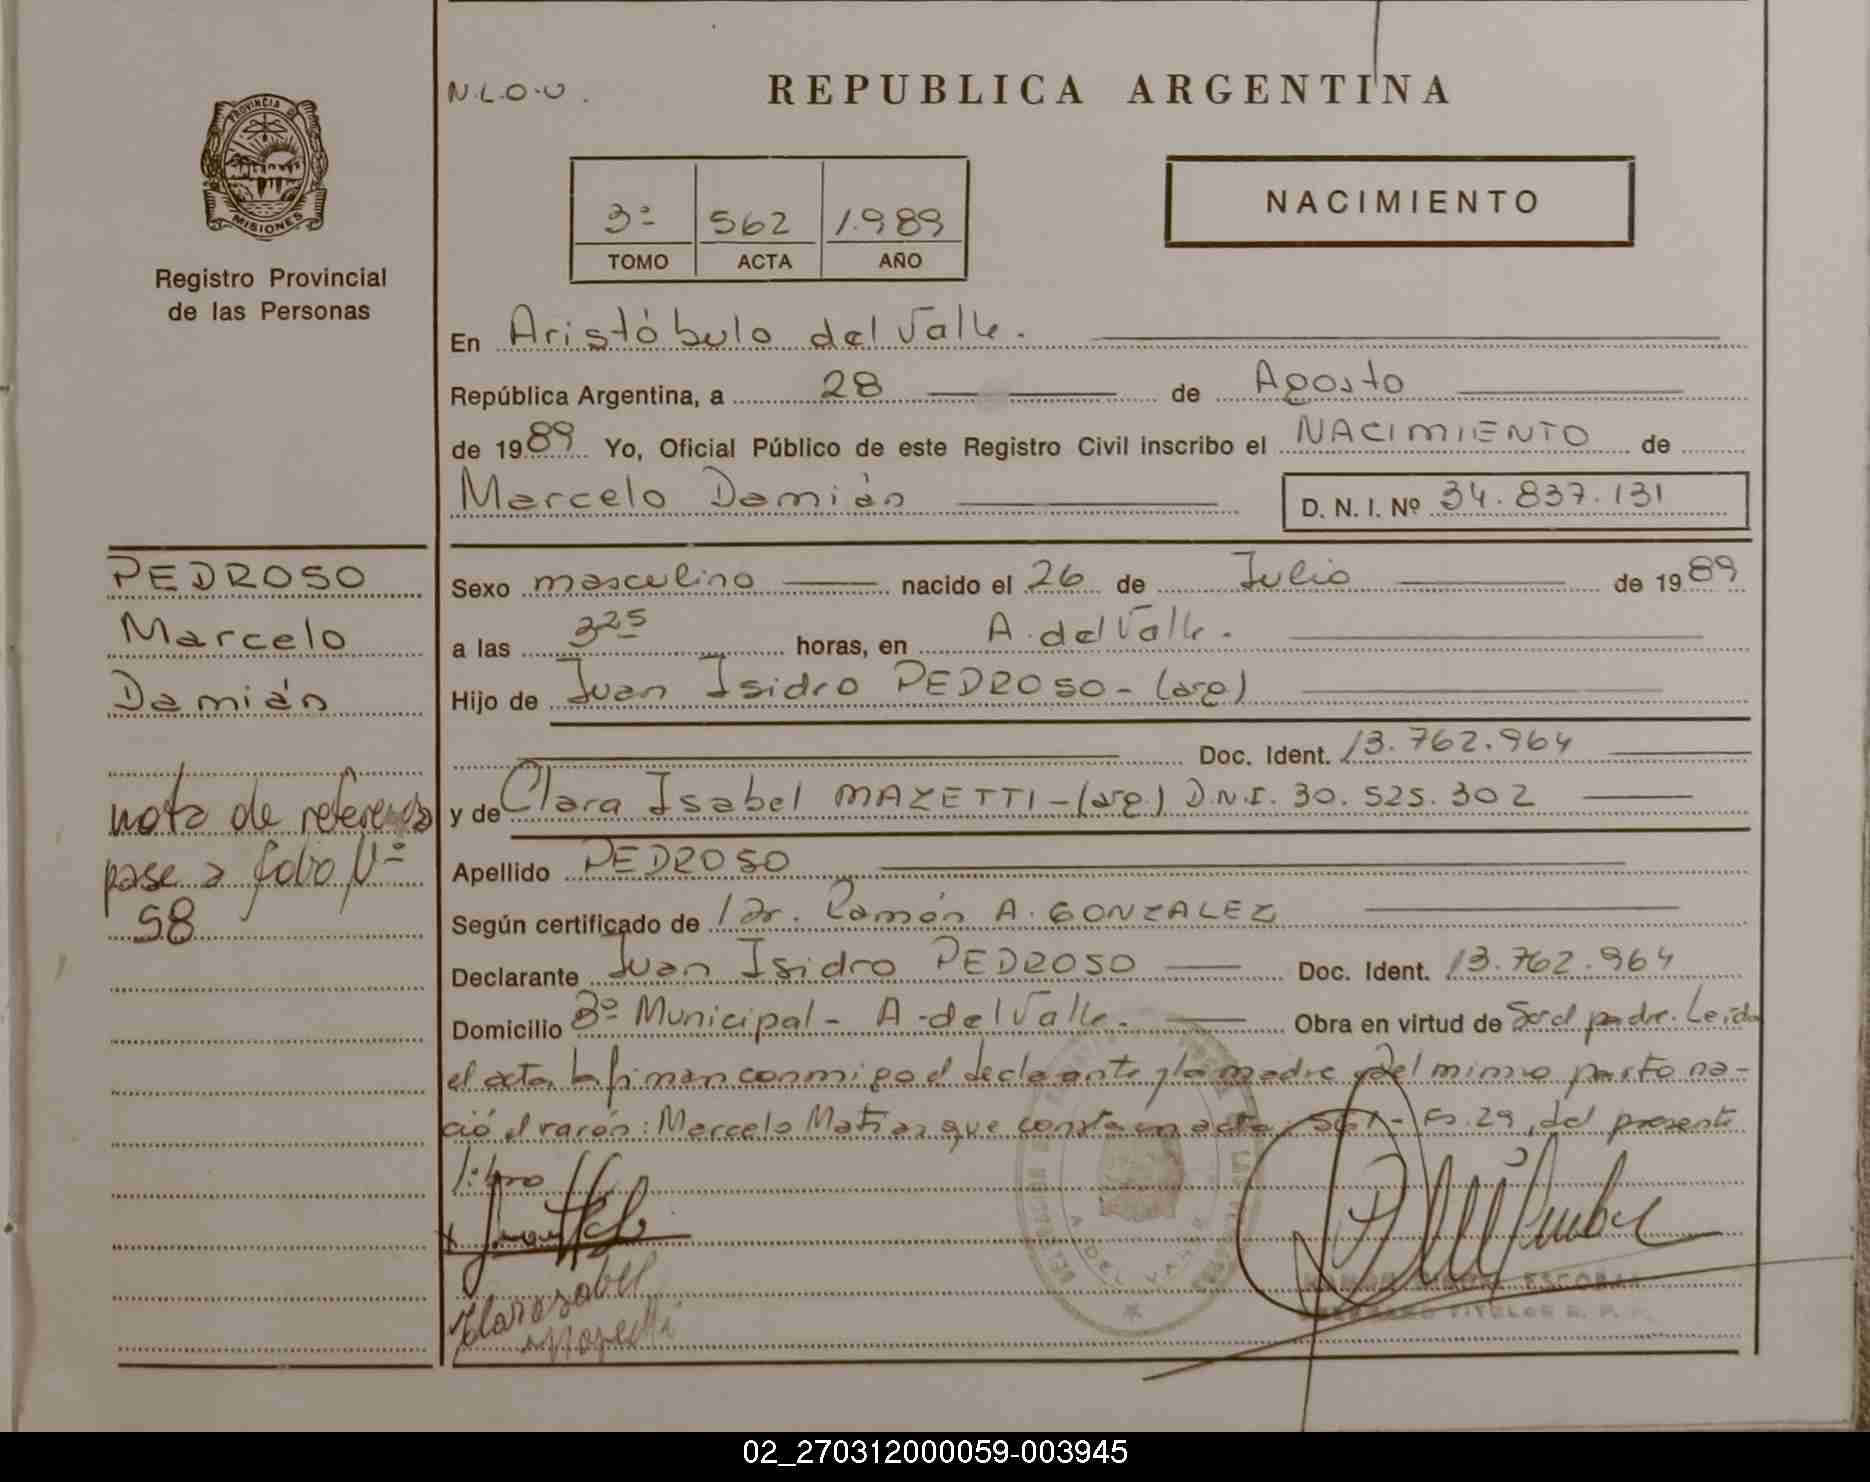 N.L.O.U.
REPUBLICA ARGENTINA
PROVINCIA D
MISIONES
Registro Provincial
de las Personas
3º 562 1.989
TOMO ACTA AÑO
NACIMIENTO
En Aristóbulo del Valle.
República Argentina, a 28 de Agosto
de 1989 Yo, Oficial Público de este Registro Civil inscribo el NACIMIENTO de
Marcelo Damián D. N. I. Nº 34.837.131
PEDROSO
Marcelo
Damián
nota de referencia
pase a folio Nº
58
Sexo masculino nacido el 26 de Julio de 1989
a las 3 25 horas, en A. del Valle.
Hijo de Juan Isidro PEDROSO - (arg)
Doc. Ident. 13.762.964
y de Clara Isabel MAZETTI - (arg.) D.N.I. 30.525.302
Apellido PEDROSO
Según certificado de Dr. Ramón A. GONZALEZ
Declarante Juan Isidro PEDROSO Doc. Ident. 13.762.964
Domicilio Bº Municipal - A. del Valle. Obra en virtud de Ser el padre. Leída
el acta la firman conmigo el declarante y la madre del mismo parto na-
ció el varón: Marcelo Matías que consta en acta Fº 29, del presente
libro
Clara Isabel
Mazetti
A. DEL VALLE
ESCOBAR
TITULAR R. P. P.
02_270312000059-003945